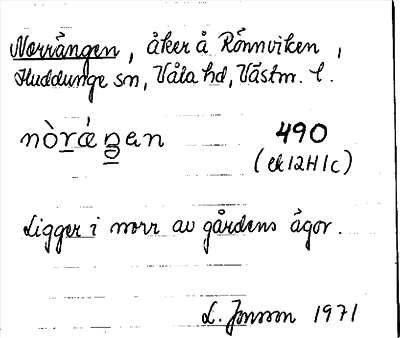 Norrängen, åker å Rönnviken,
Huddunge sn, Våla hd, Västm. l.
nòrǽŋen 490
(ek 12H1c)
Ligger i norr av gårdens ägor.
L. Jonsson 1971